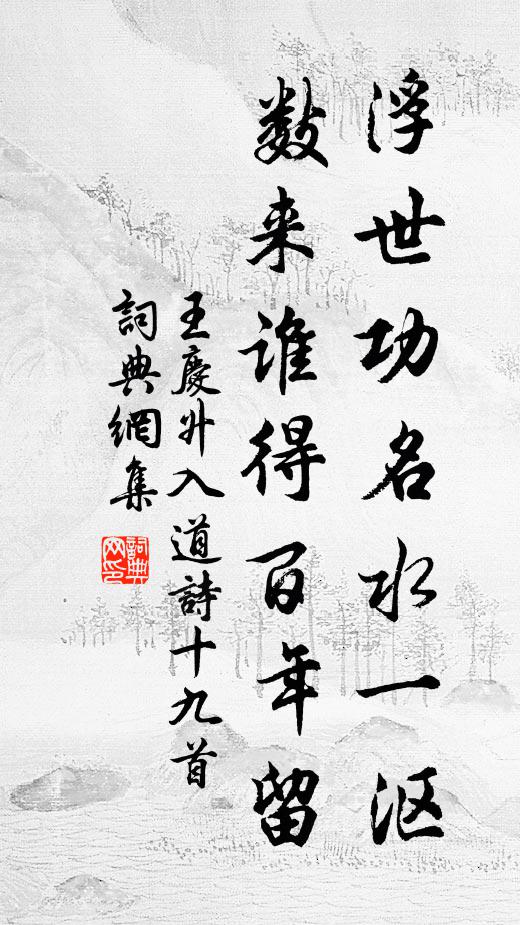 浮世功名水一沤
数来谁得百年留
王慶升入道詩十九首
詞典網集
詞典网印